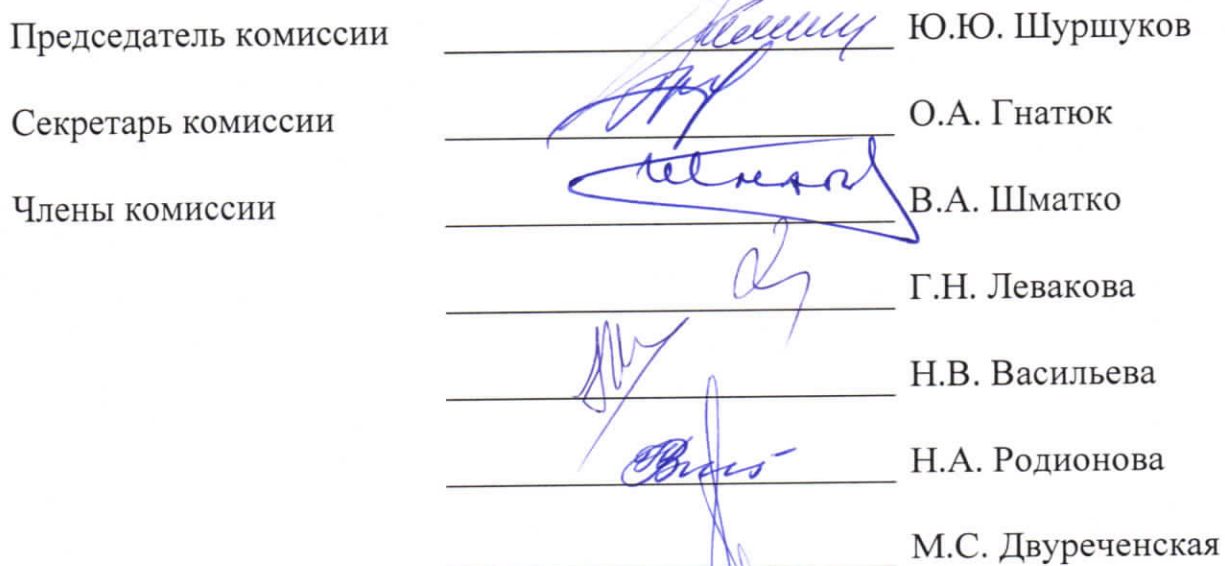 Председатель комиссии Ю.Ю. Шуршуков
Секретарь комиссии О.А. Гнатюк
Члены комиссии В.А. Шматко
Г.Н. Левакова
Н.В. Васильева
Н.А. Родионова
М.С. Двуреченская